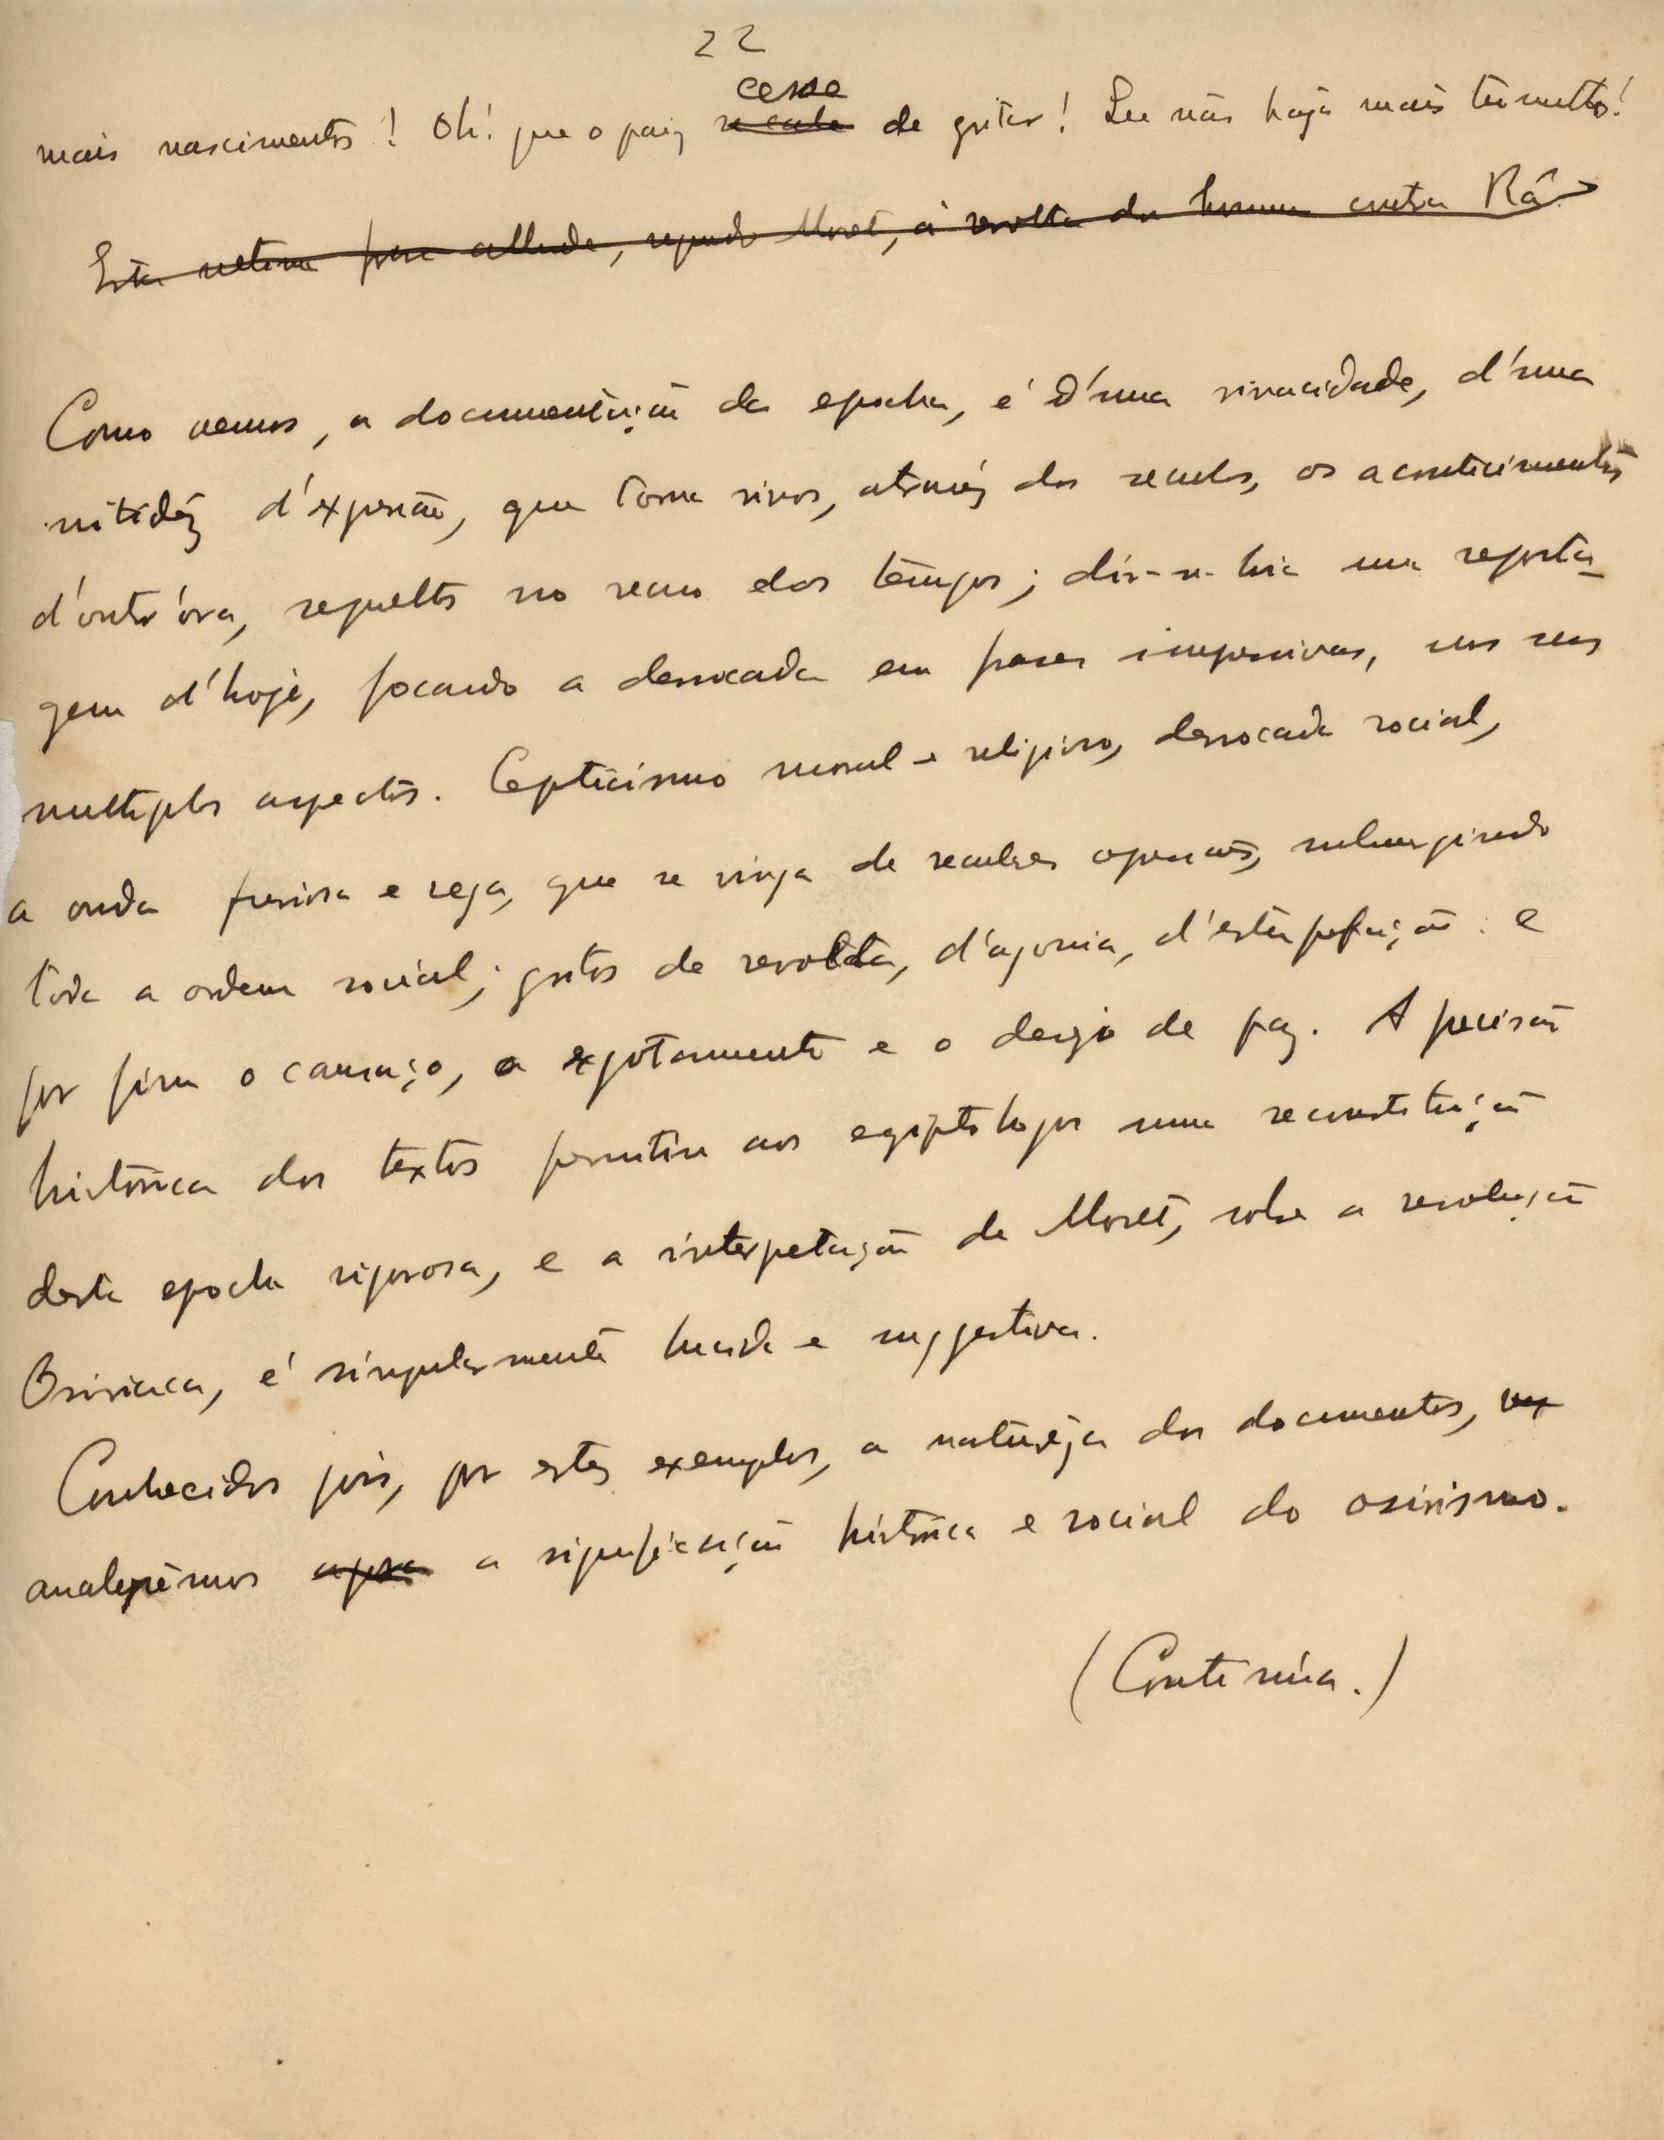 22
mais nascimentos! Oh! que o paiz cesse de gritar! Que não haja mais tumulto!
Esta ultima frase allude, segundo Moret, á revolta dos homens contra Râ
Como vemos, a documentação da epocha, é d'uma vivacidade, d'uma
nitidêz d'expressão, que torna vivos, atravéz dos seculos, os acontecimentos
d'outr'óra, sepultos no seio dos tempos; dir-se-hia uma reporta-
gem d'hoje, focando a derrocada em frases impressivas, nos seus
multiplos aspectos. Cepticismo moral e religioso, derrocada social,
a onda furiosa e cega, que se vinga de seculares opressões, submergindo
toda a ordem social; gritos de revolta, d'agonia, d'estupefação: e
por fim o cansaço, o exgotamento e o desejo de paz. A precisão
historica dos textos permitiu aos egiptologos uma reconstituição
desta epocha rigorosa, e a interpetação de Moret, sobre a revolução
Osiriaca, é singularmente lucida e suggestiva.
Conhecidos pois, por estes exemplos, a naturêza dos documentos,
analysêmos agora a significação histórica e social do osirismo.
(Continúa.)